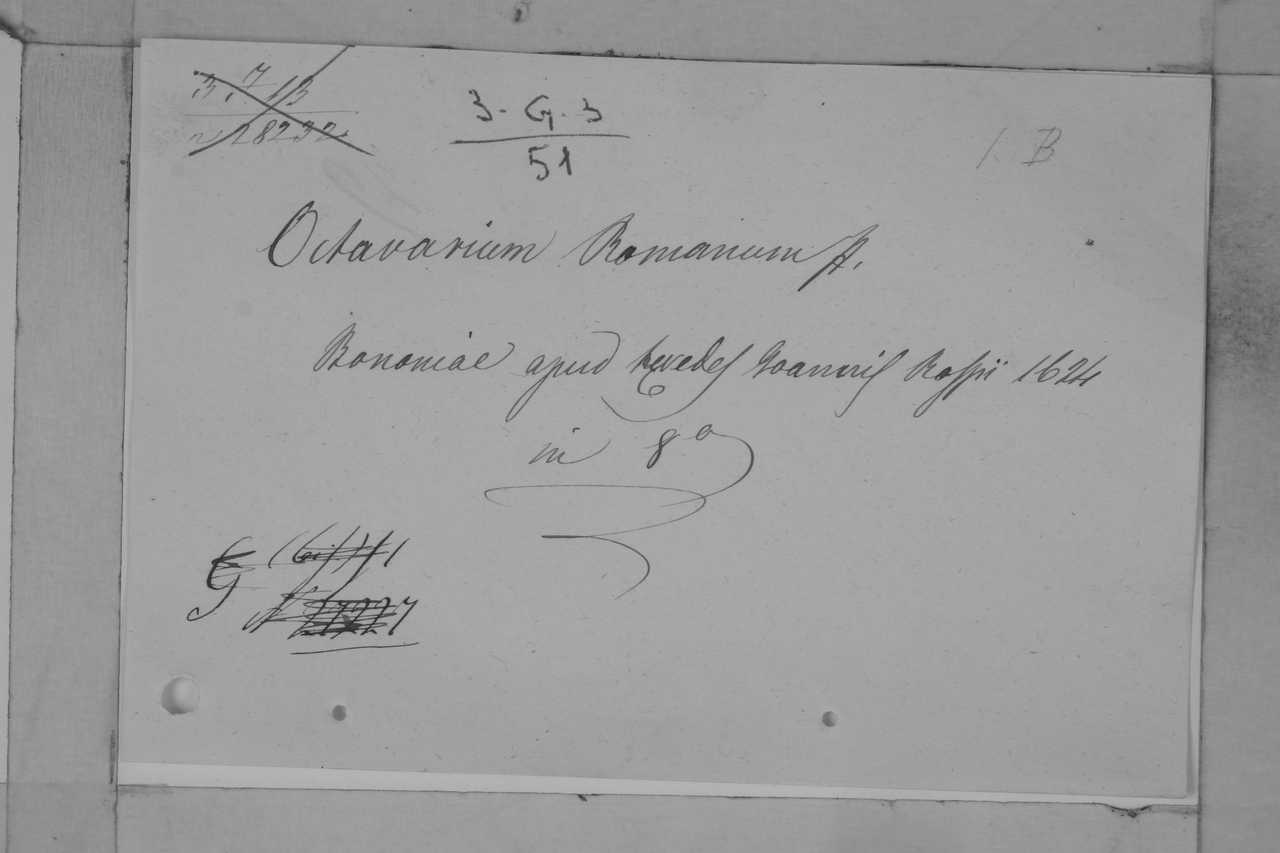 3. 7. 13
28232
3. G. 3
51
1. B
Octavarium Romanum p.
Bononiae apud heredes Joannis Rossii 1624
in 8º
G